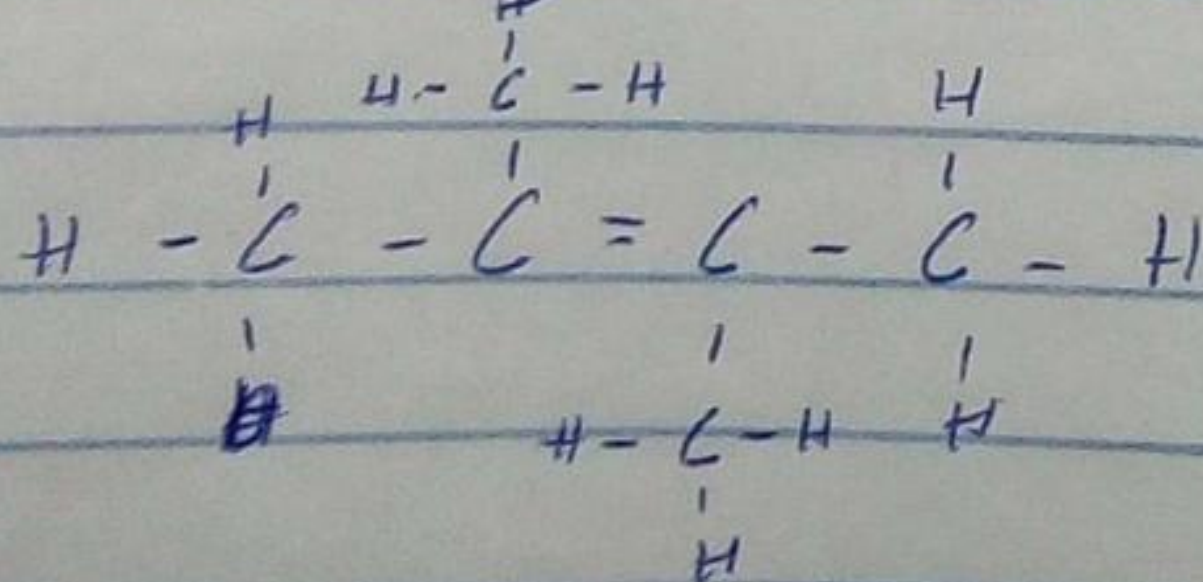 H
H - C - H
H H
H - C - C = C - C - H
H - C - H H
H